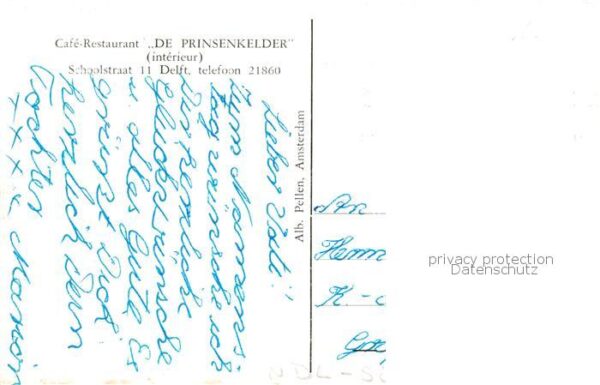 Café-Restaurant „DE PRINSENKELDER"
(intérieur)
Schoolstraat 11 Delft, telefoon 21860
Lieber Vati!
Zum Namens
tag wünsche ich
Dir herzliche
Glückwünsche
u. alles Gute. Es
grüsst Dich
herzlich Dein
Tochter
xxx Marion
Alb. Pellen, Amsterdam
An
Herrn
K.
privacy protection
Datenschutz